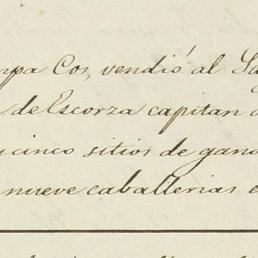 mpa Cos, vendió al
de Escorza capitan
cinco sitios de
nueve caballerias